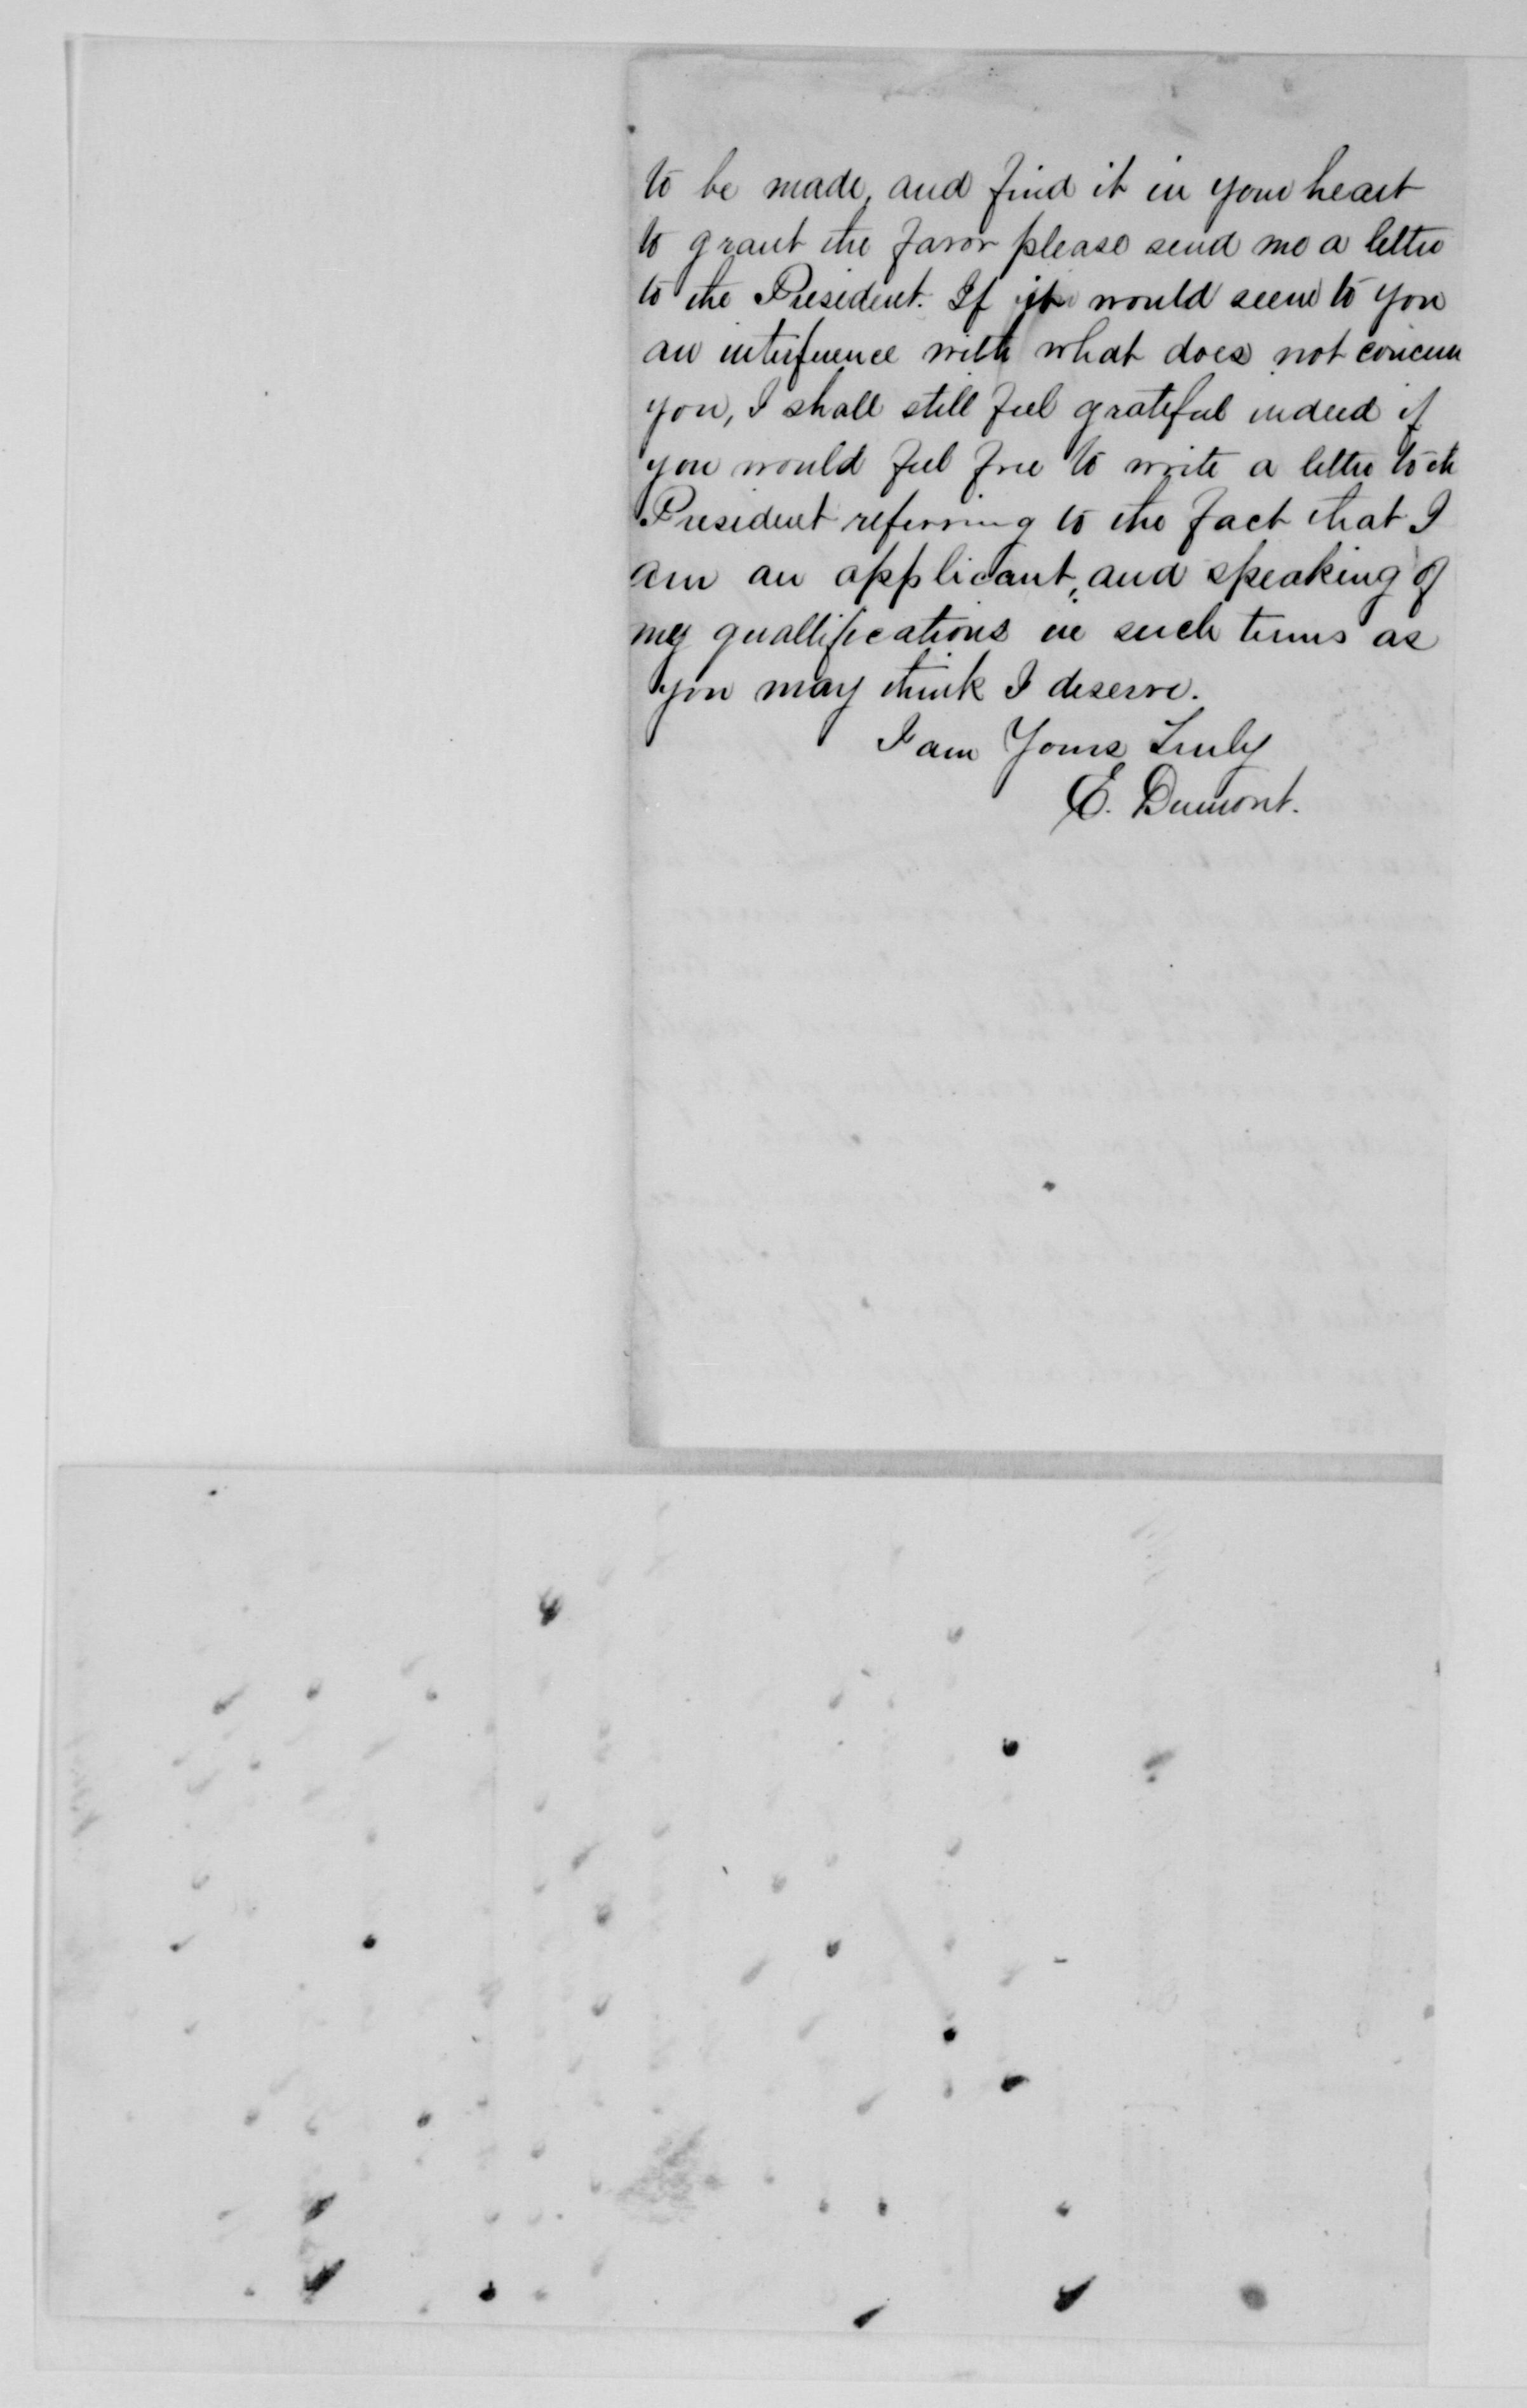 to be made, and find it in your heart
to grant the favor please send me a letter
to the President. If it would seem to you
an interference with what does not concern
you, I shall still feel grateful indeed if
you would feel free to write a letter to the
President referring to the fact that I
am an applicant, and speaking of
my quallifications in such terms as
you may think I deserve.
I am Yours Truly
E. Dumont.